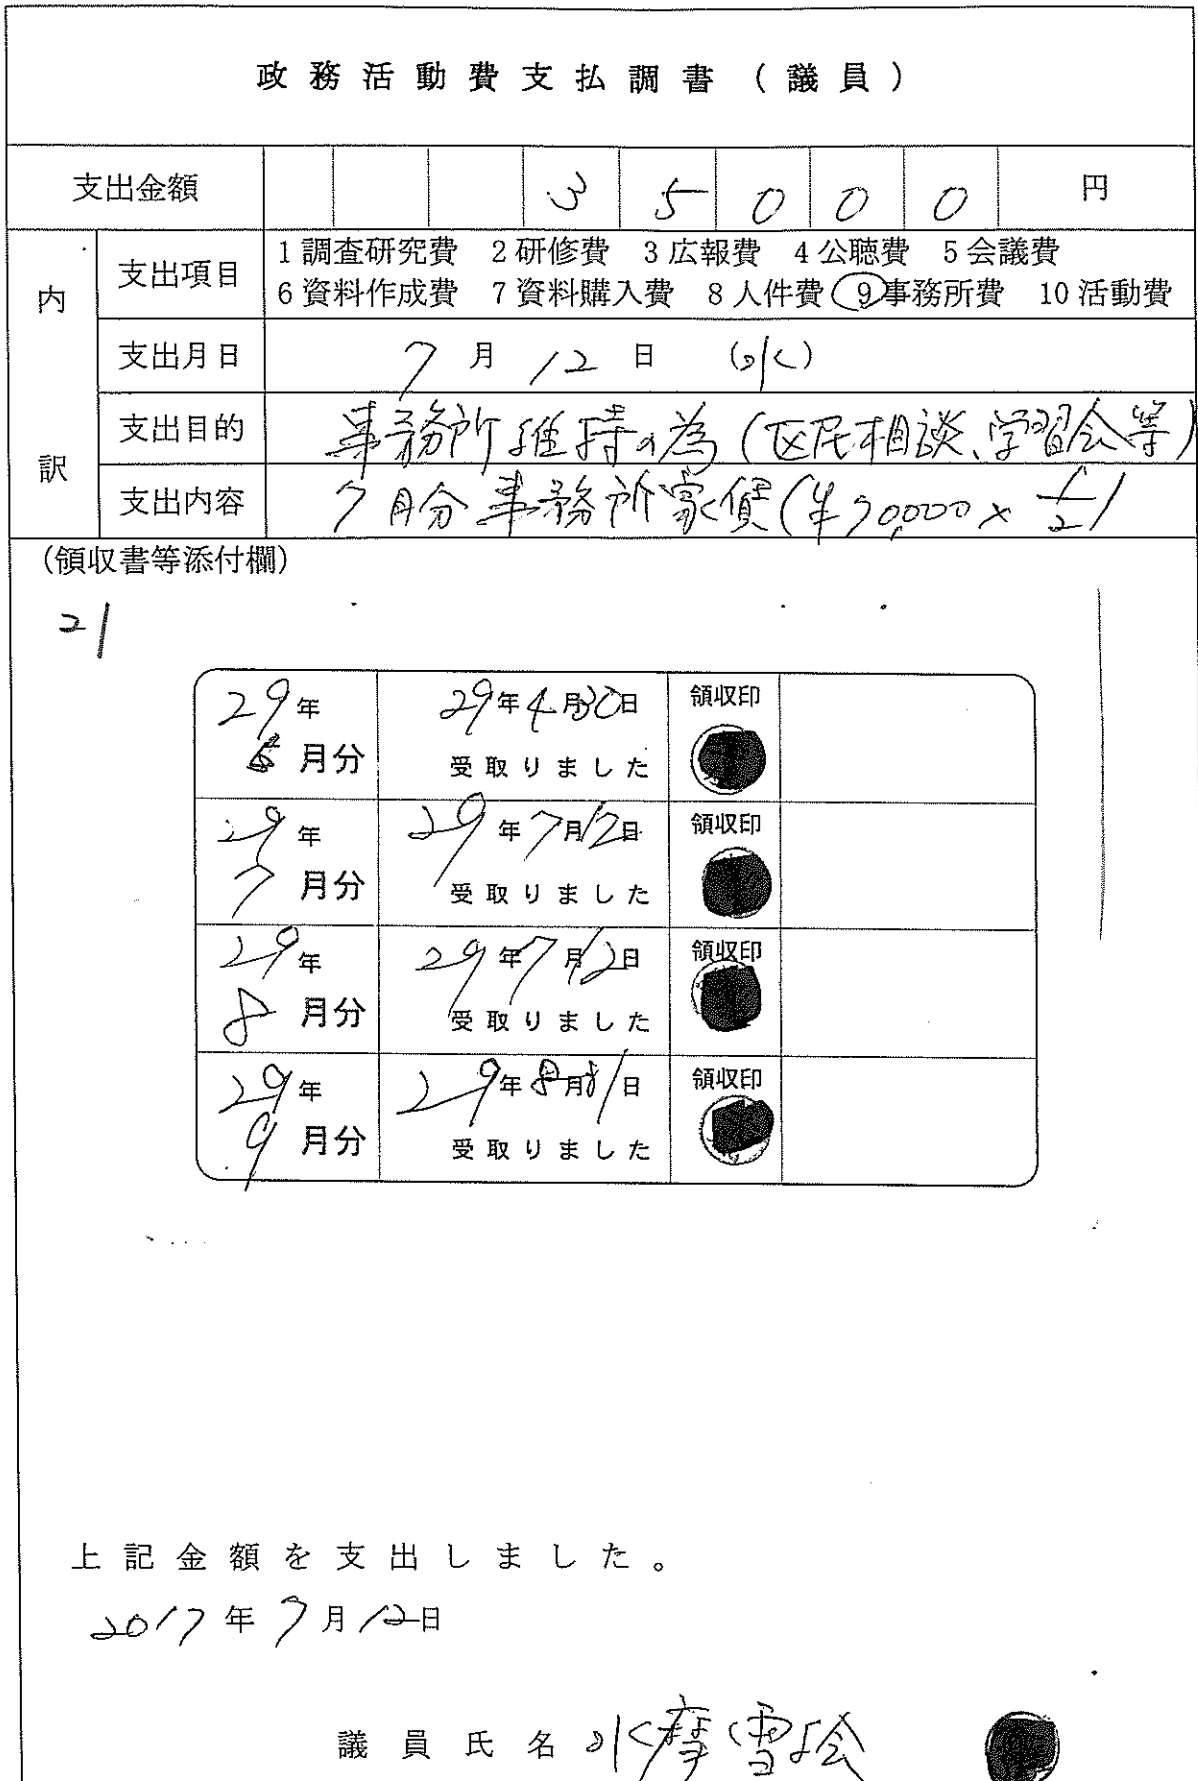 政務活動費支払調書(議員)
支出金額 35000円
内訳
支出項目 1調査研究費 2研修費 3広報費 4公聴費 5会議費
6資料作成費 7資料購入費 8人件費 ⑨事務所費 10活動費
支出月日 7月12日 (水)
支出目的 事務所維持の為(区民相談、学習会等)
支出内容 7月分事務所家賃(¥70,000×1/2)
(領収書等添付欄)
21
29年 29年4月30日 領収印
月分 受取りました
29年 29年7月12日 領収印
7月分 受取りました
29年 29年7月12日 領収印
8月分 受取りました
29年 29年8月 日 領収印
9月分 受取りました
上記金額を支出しました。
2017年7月12日
議員氏名 水摩雪絵